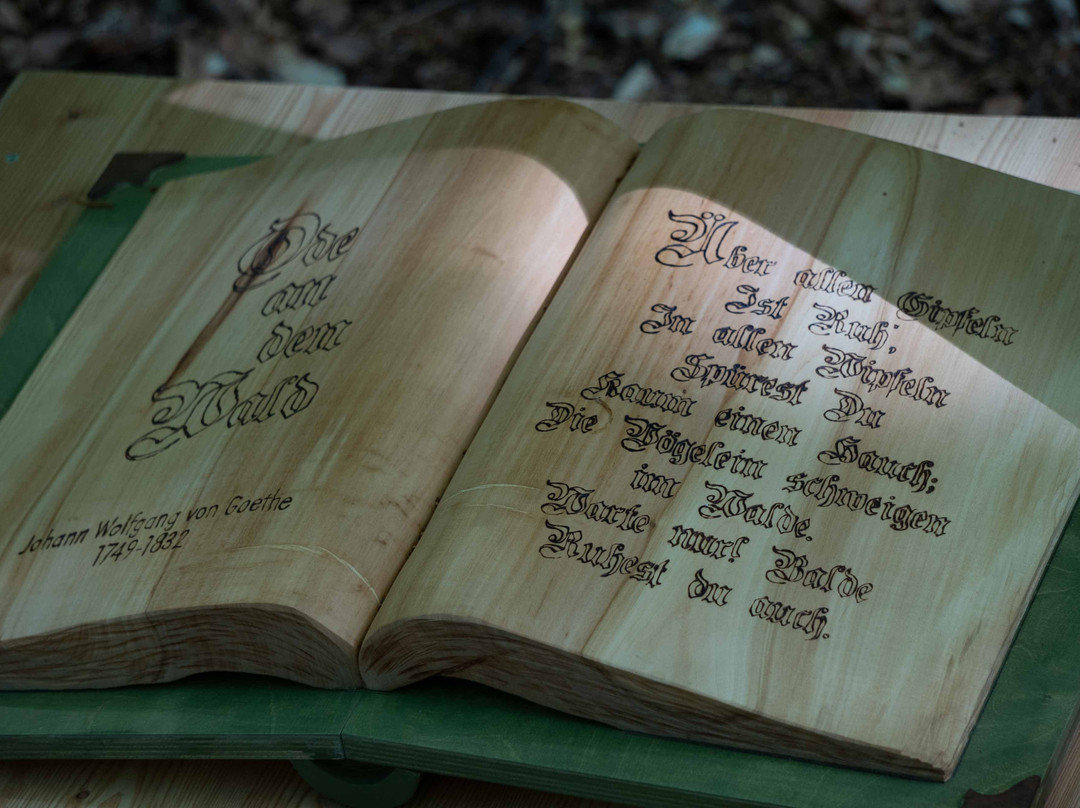 Ode
an
dem
Wald
Johann Wolfgang von Goethe
1749-1832
Über allen Gipfeln
Ist Ruh',
In allen Wipfeln
Spürest Du
Kaum einen Hauch;
Die Vögelein schweigen
im Walde.
Warte nur! Balde
Ruhest du auch.